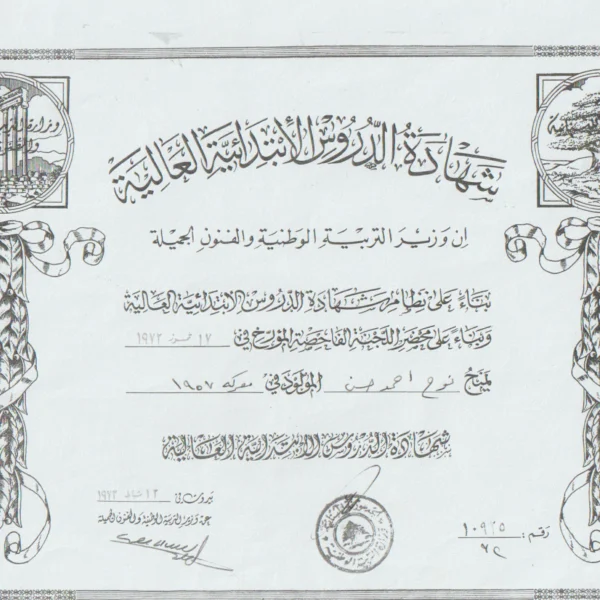 شهادة الدروس الابتدائية العالية
إن وزير التربية الوطنية والفنون الجميلة
بناءً على نظام شهادة الدروس الابتدائية العالية
وبناءً على محضر اللجنة الفاحصة المؤرخ في ١٧ تموز ١٩٧٢
يمنح نوح احمد حسن المولود في معركه ١٩٥٧
شهادة الدروس الابتدائية العالية
بيروت في ١٩٧٢
وزير التربية الوطنية والفنون الجميلة
رقم: ١٠٩٢٥
٧٢